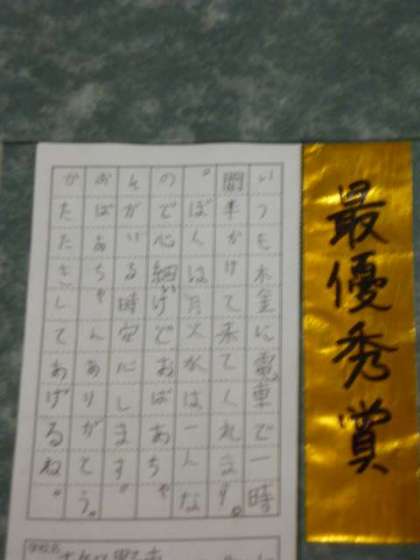 最優秀賞
いつも木金に電車で一時
間半かけて来てくれます
。ぼくは月火水は一人な
ので心細いけどおばあちゃ
んがいる時安心します。
おばあちゃんありがとう。
かたたきしてあげるね。
学校名